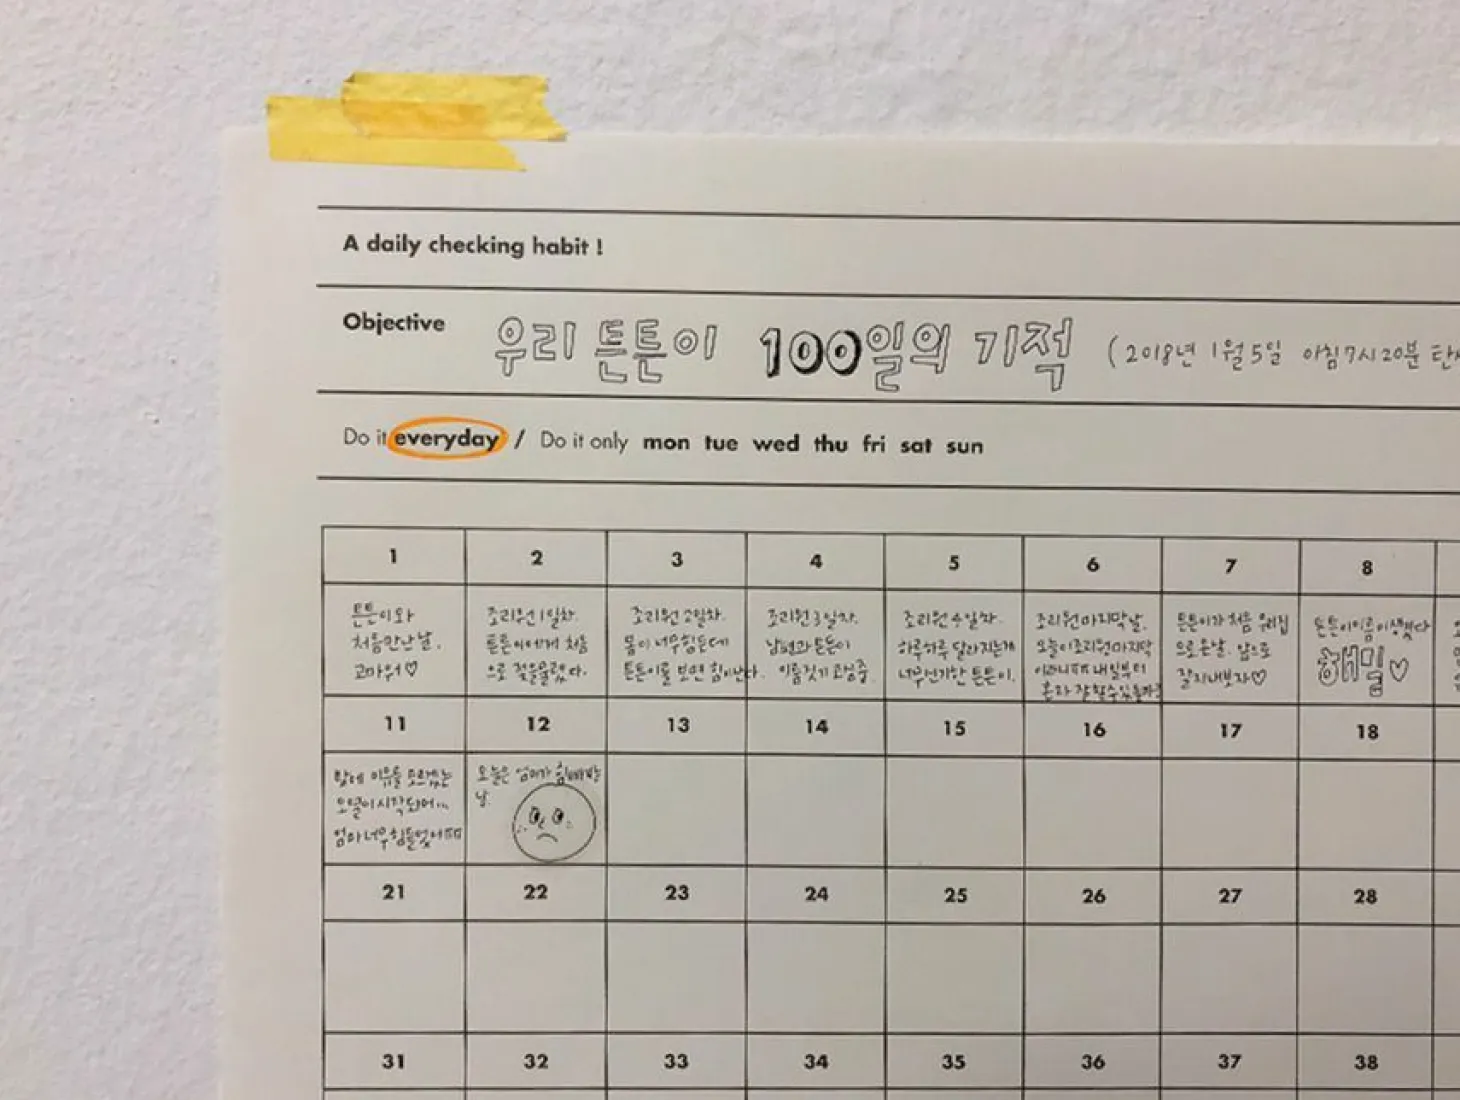 A daily checking habit !
Objective 우리 튼튼이 100일의 기적 (2018년 1월 5일 아침 7시 20분
Do it everyday / Do it only mon tue wed thu fri sat sun
1 2 3 4 5 6 7 8
튼튼이와
처음만난날.
고마워♡
조리원 1일차.
튼튼이에게 처음
으로 젖을물렸다.
조리원 2일차.
몸이 너무힘든데
튼튼이를 보면 힘이난다.
조리원 3일차.
남편과 튼튼이
이름짓기 고심중.
조리원 4일차.
하루하루 달라지는게
너무신기한 튼튼이.
조리원 마지막날.
오늘이조리원마지막
내일부터
혼자 잘할수있을까?
튼튼이가 처음 우리집
으로 온날. 앞으로
잘지내보자♡
튼튼이이름이생겼다
해밀♡
11 12 13 14 15 16 17 18
밤에 이유를 모르겠는
오열이시작되어...
엄마너무힘들었어ㅠㅠ
오늘은 엄마가 힘빠진
날.
21 22 23 24 25 26 27 28
31 32 33 34 35 36 37 38